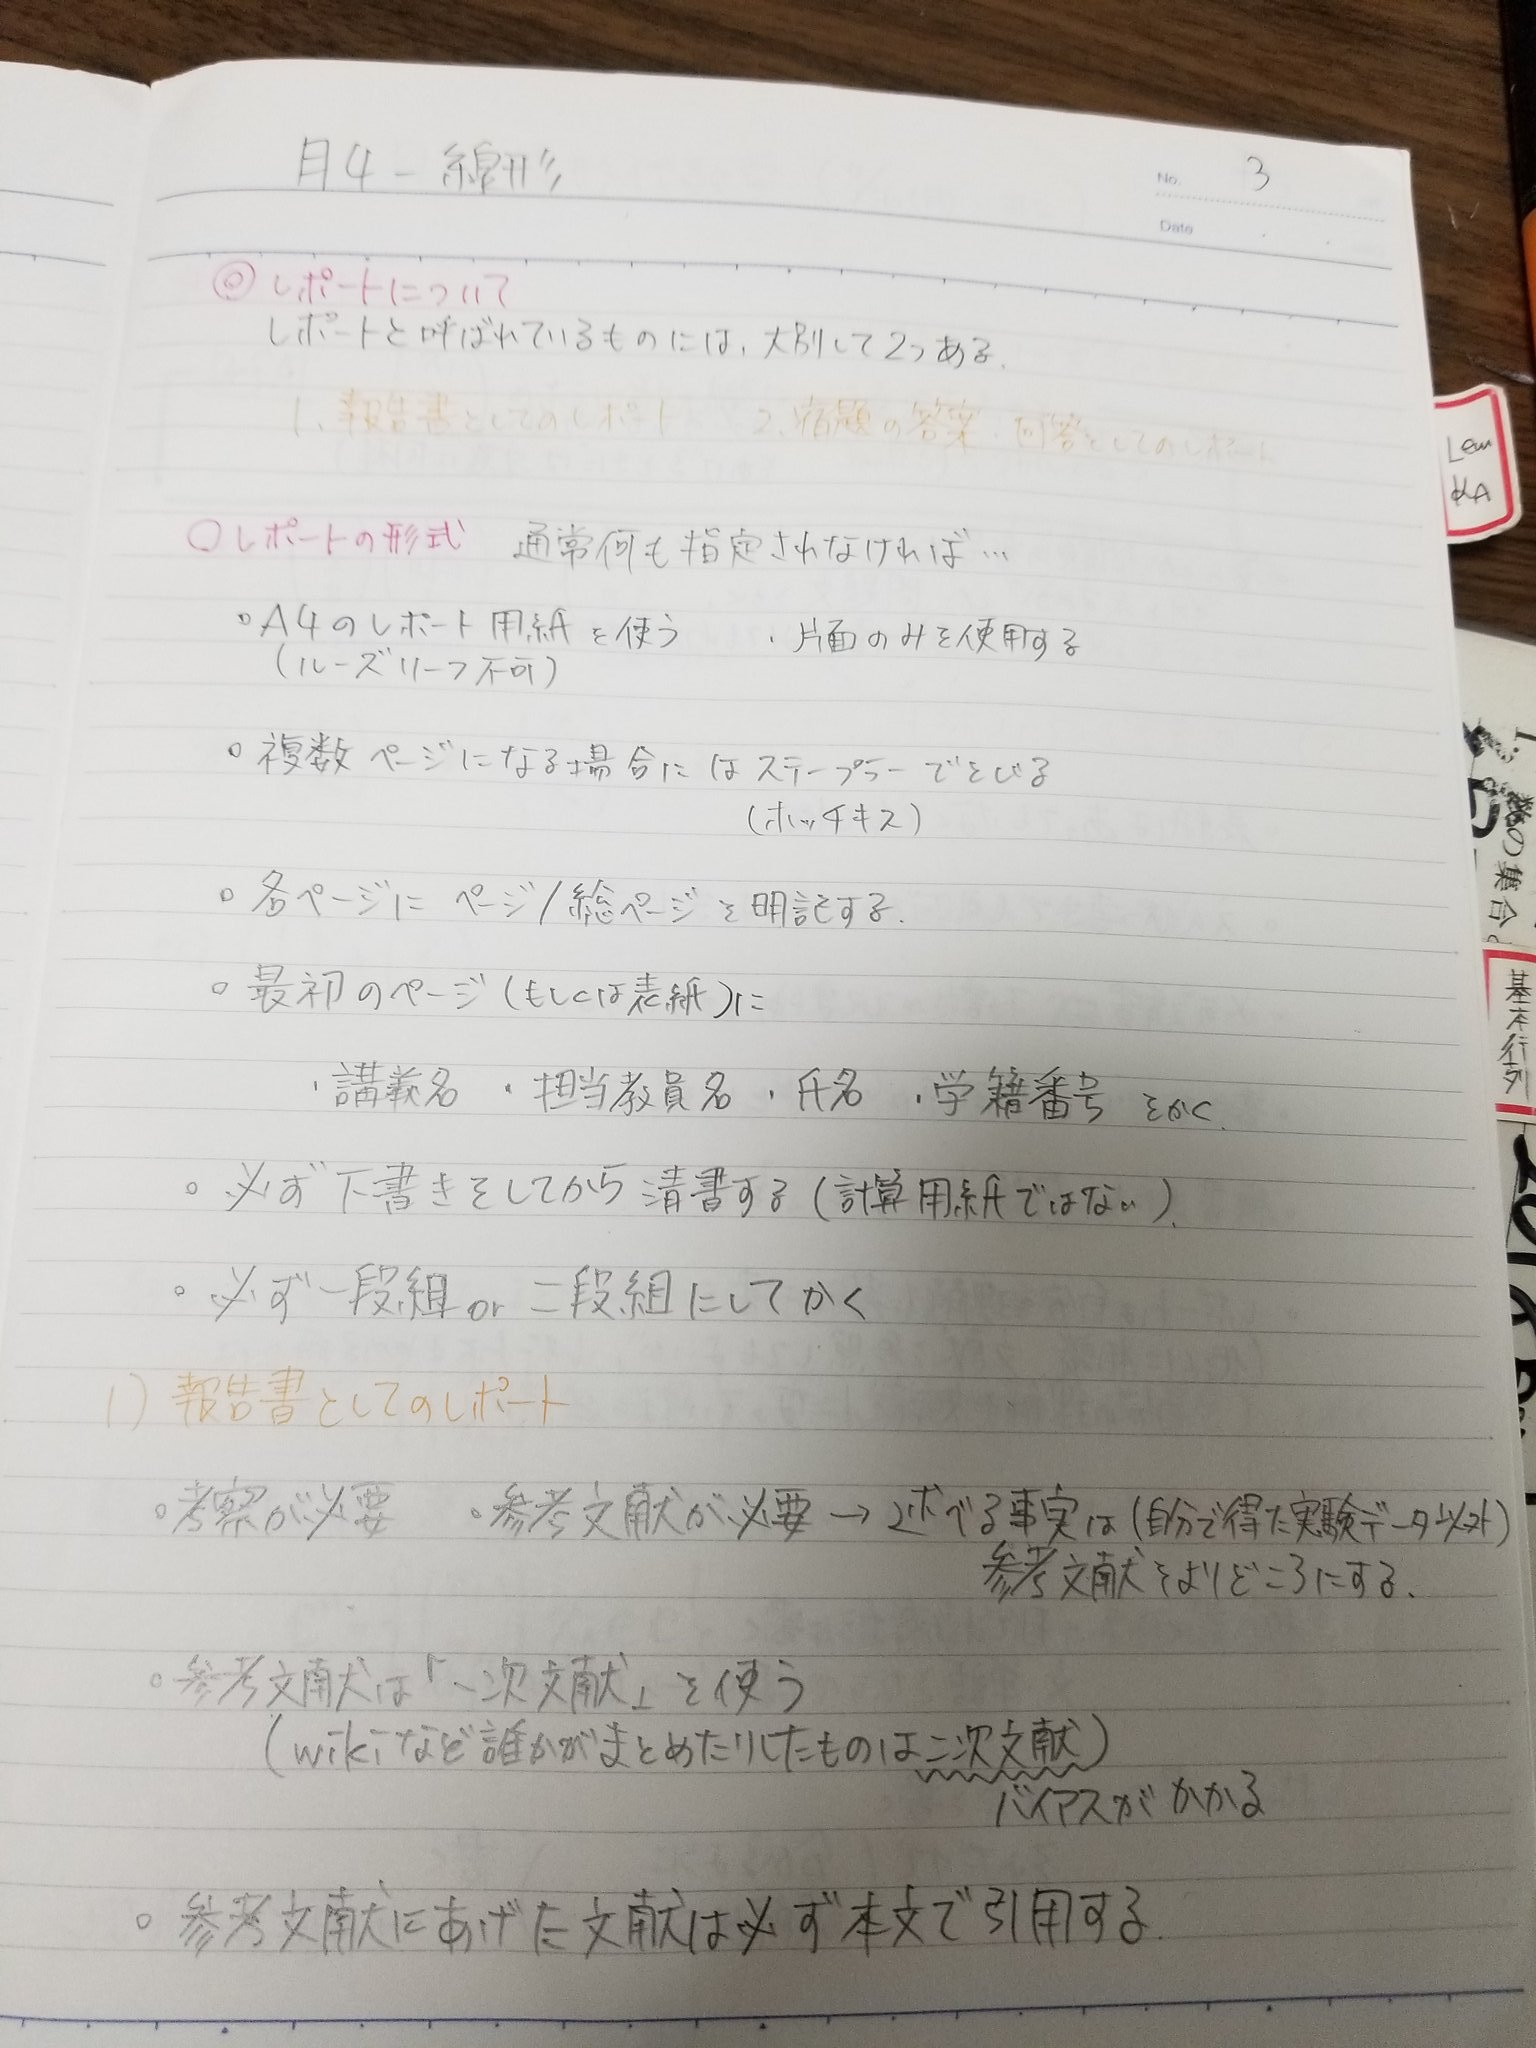 月4-線形
No. 3
Date
◎レポートについて
レポートと呼ばれているものには、大別して2つある.
1.報告書としてのレポート 2.宿題の答案・回答としてのレポート
○レポートの形式 通常何も指定されなければ…
・A4のレポート用紙を使う ・片面のみを使用する
(ルーズリーフ不可)
・複数ページになる場合にはステープラーでとじる
(ホッチキス)
・各ページに ページ/総ページを明記する.
・最初のページ(もしくは表紙)に
・講義名 ・担当教員名 ・氏名 ・学籍番号 をかく.
・必ず下書きをしてから清書する(計算用紙ではない).
・必ず一段組or二段組にしてかく
1)報告書としてのレポート
・考察が必要 ・参考文献が必要→述べる事実は(自分で得た実験データ以外)
参考文献をよりどころにする.
・参考文献は「一次文献」を使う
(wikiなど誰かがまとめたりしたものは二次文献)
バイアスがかかる
・参考文献にあげた文献は必ず本文で引用する.
Lem
基本行列
数の集合